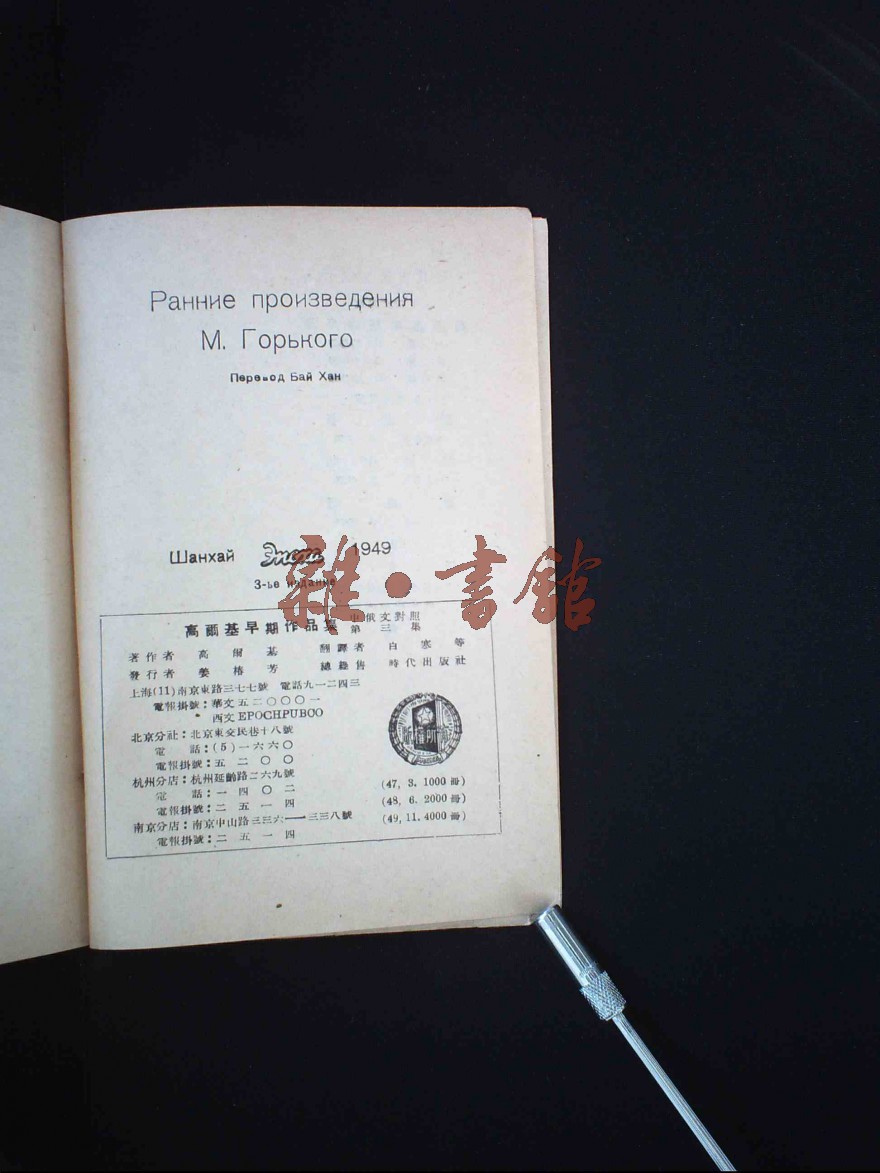 Ранние произведения
М. Горького
Перевод Бай Хан
Шанхай Эпоха 1949
3-ье издание
雜·書館
高爾基早期作品集 中俄文對照 第三集
著作者 高爾基 翻譯者 白寒等
發行者 姜椿芳 總經售 時代出版社
上海(11)南京東路三七七號 電話九一二四三
電報掛號：華文五二〇〇〇一
西文 EPOCHPUBCO
北京分社：北京東交民巷十八號
電話：(5)一六六〇
電報掛號：五二〇〇
杭州分店：杭州延齡路二六九號
電話：一四〇二
電報掛號：二五一四
南京分店：南京中山路三三六—三三八號
電報掛號：二五一四
(47, 3. 1000 冊)
(48, 6. 2000 冊)
(49, 11. 4000 冊)